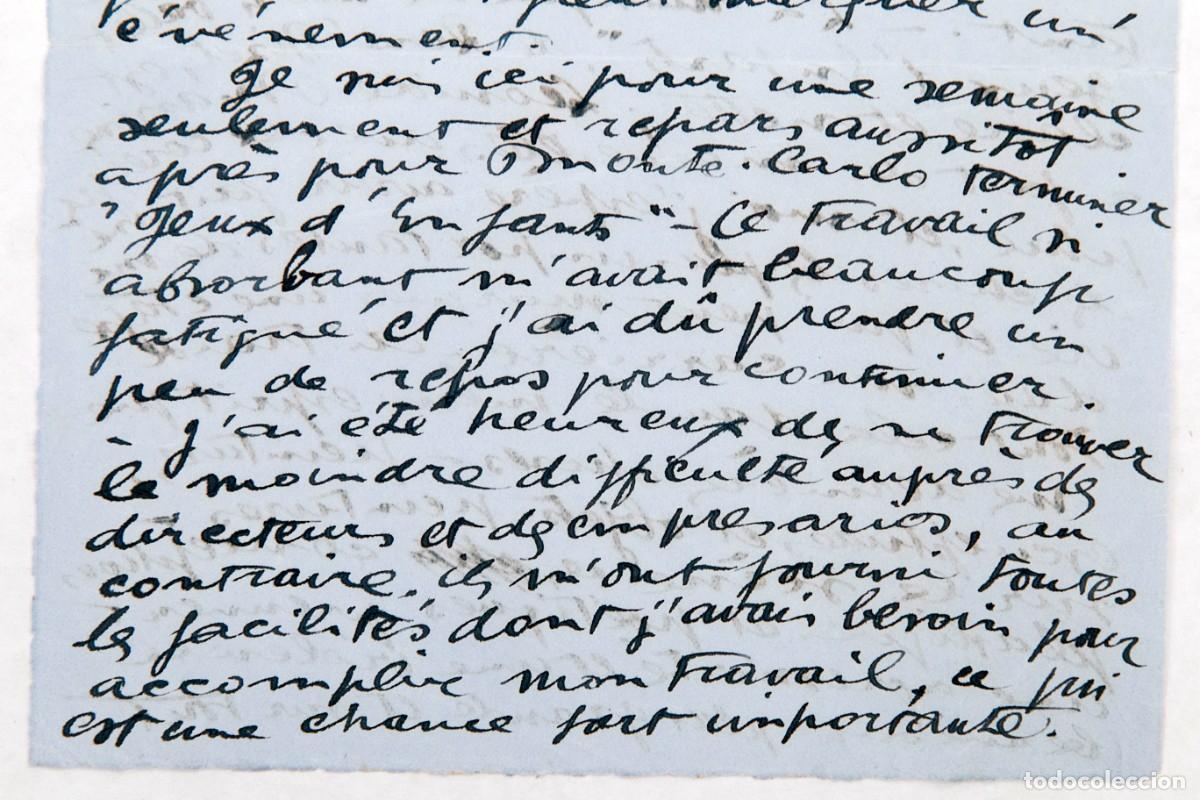 marquer un
événement.
Je suis ici pour une semaine
seulement et repars aussitôt
après pour Monte-Carlo terminer
"Jeux d'Enfants" - Ce travail si
absorbant m'avait beaucoup
fatigué et j'ai dû prendre un
peu de repos pour continuer.
- J'ai été heureux de ne trouver
la moindre difficulté auprès des
directeurs et des empresarios, au
contraire, ils m'ont fourni toutes
les facilités dont j'avais besoin pour
accomplir mon travail, ce qui
est une chance fort importante.
todocoleccion